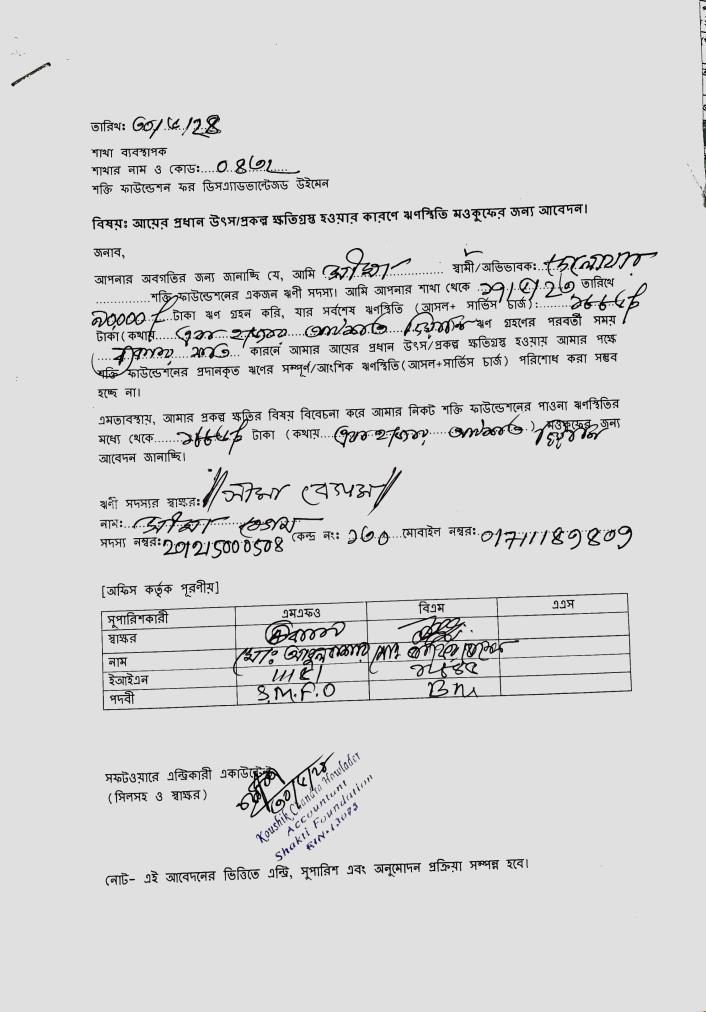 তারিখ: ৩০/৫/২৪
শাখা ব্যবস্থাপক
শাখার নাম ও কোড:
শক্তি ফাউন্ডেশন ফর ডিসএ্যাডভান্টেজড উইমেন
বিষয়: আয়ের প্রধান উৎস/প্রকল্প ক্ষতিগ্রস্থ হওয়ার কারণে ঋণস্থিতি মওকুফের জন্য আবেদন।
জনাব,
আপনার অবগতির জন্য জানাচ্ছি যে, আমি সীমা স্বামী/অভিভাবক:
শক্তি ফাউন্ডেশনের একজন ঋণী সদস্য। আমি আপনার শাখা থেকে তারিখে
২০,০০০/- টাকা ঋণ গ্রহন করি, যার সর্বশেষ ঋণস্থিতি (আসল+ সার্ভিস চার্জ):
টাকা(কথায় এক হাজার আটশত ঋণ গ্রহণের পরবর্তী সময়
কারনে আমার আয়ের প্রধান উৎস/প্রকল্প ক্ষতিগ্রস্থ হওয়ায় আমার পক্ষে
শক্তি ফাউন্ডেশনের প্রদানকৃত ঋণের সম্পূর্ণ/আংশিক ঋণস্থিতি(আসল+সার্ভিস চার্জ) পরিশোধ করা সম্ভব
হচ্ছে না।
এমতাবস্থায়, আমার প্রকল্প ক্ষতির বিষয় বিবেচনা করে আমার নিকট শক্তি ফাউন্ডেশনের পাওনা ঋণস্থিতির
মধ্যে থেকে টাকা (কথায় এক হাজার আটশত ) মওকুফের জন্য
আবেদন জানাচ্ছি।
ঋণী সদস্যর স্বাক্ষর: সীমা বেগম
নাম: সীমা বেগম
সদস্য নম্বর: 201215000508 কেন্দ্র নং: ১৩০ মোবাইল নম্বর: 01711189809
[অফিস কর্তৃক পূরণীয়]
সুপারিশকারী এমএফও বিএম এএস
স্বাক্ষর
নাম মোঃ
ইআইএন
পদবী S.M.F.O B.M
সফটওয়ারে এন্ট্রিকারী একাউন্টেন্ট
(সিলসহ ও স্বাক্ষর) ৩০/৫/২৪
Koushik Chandra Howlader
Accountant
Shakti Foundation
EIN-13083
নোট- এই আবেদনের ভিত্তিতে এন্ট্রি, সুপারিশ এবং অনুমোদন প্রক্রিয়া সম্পন্ন হবে।